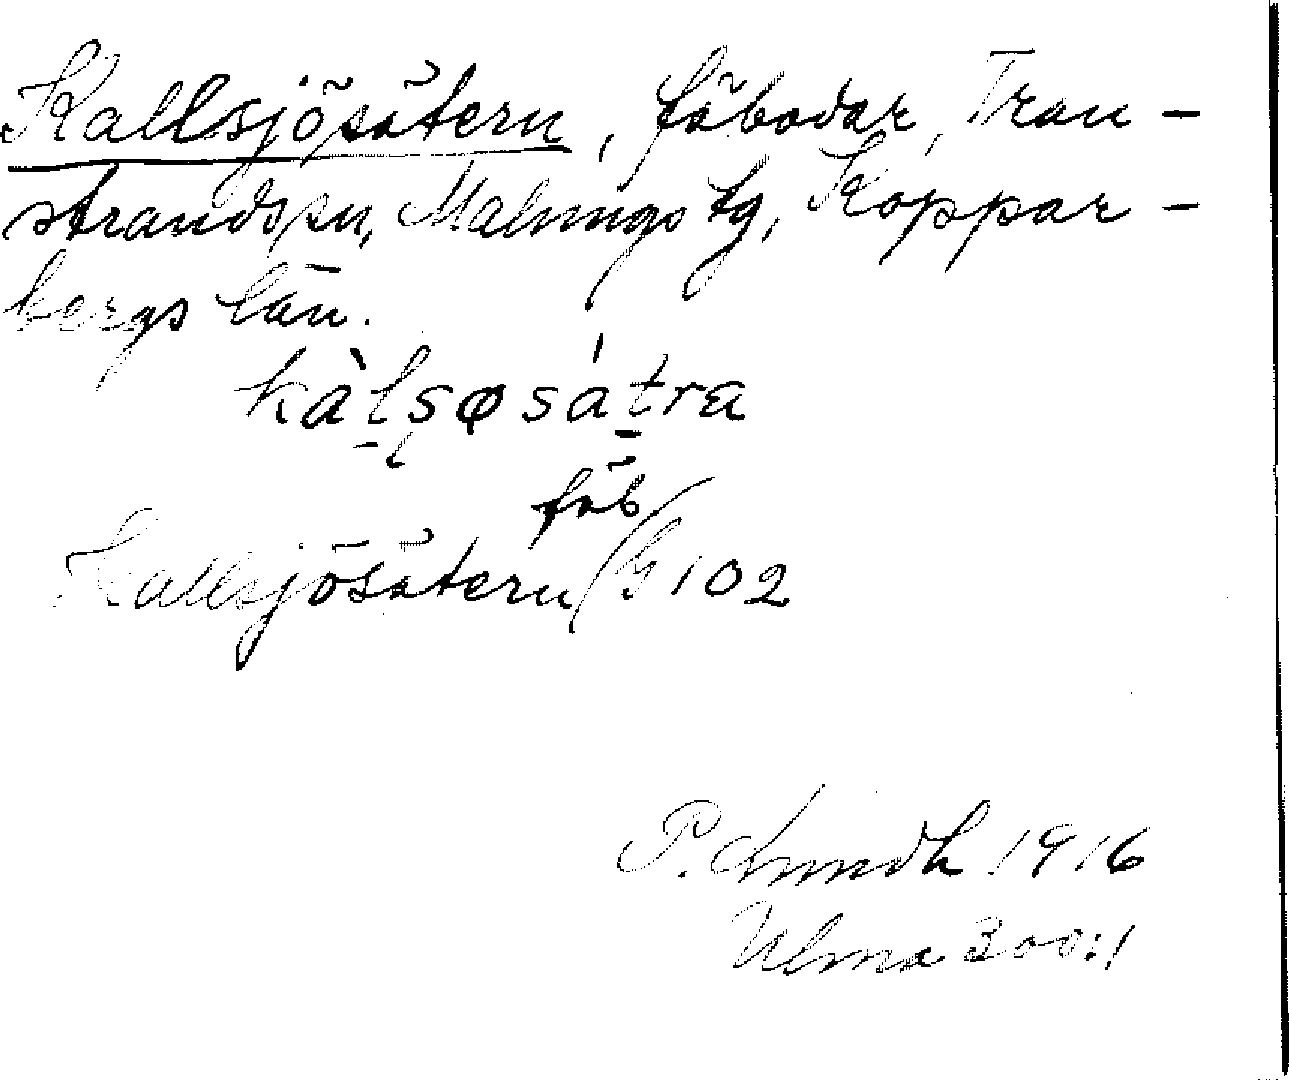 Kallsjösätern, fäbodar, Tran-
strands sn, Malungs tg, Koppar-
bergs län.
kàlsøsátra
fäb
Kallsjösätern / G 102
P. Lindh 1916
Ulma 300:1